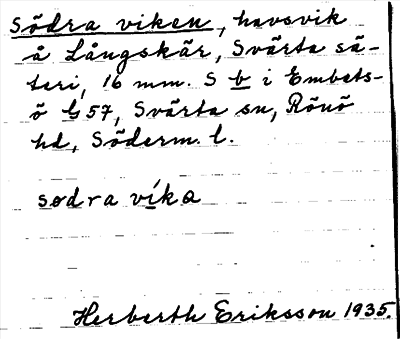 Södra viken, havsvik
å Långskär, Svärta sä-
teri, 16 mm. S b i Embets-
ö G57, Svärta sn, Rönö
hd, Söderm. l.
sødra víka
Herberth Eriksson 1935.